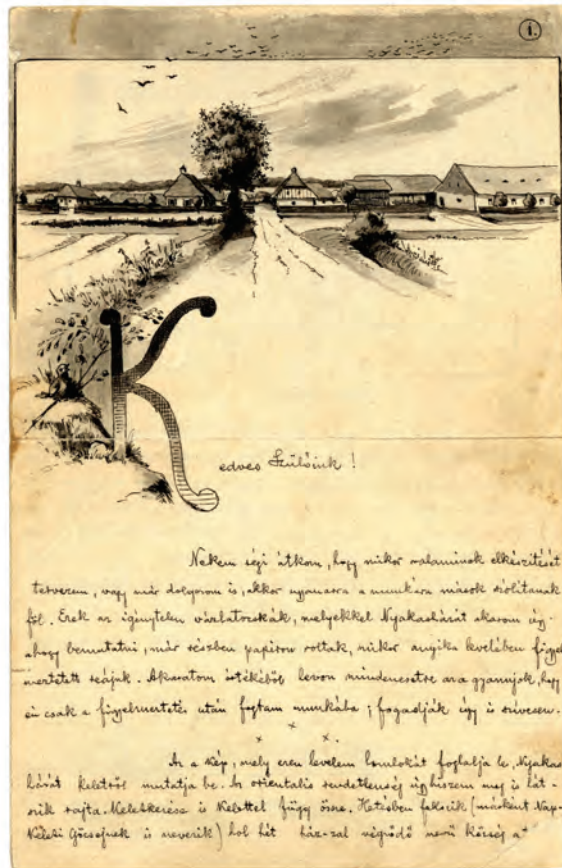 1.
Kedves Szülőink !
Nekem régi átkom, hogy mikor valaminek elkészítését
tervezem, vagy már dolgozom is, akkor ugyanarra a munkára mások szólítanak
föl. Ezek az igénytelen vázlatocskák, melyekkel Nyakasházát akarom úgy-
ahogy bemutatni, már részben papíron voltak, mikor angika levelében figyel
meztetett reájok. Akaratom értékéből levon mindenesetre az a gyanujok, hogy
én csak a figyelmeztetés után fogtam munkába ; fogadják így is szívesen.
x x x
Az a kép, mely ezen levelem homlokát foglalja le, Nyakas
házát keletről mutatja be. Az orientalis rendetlenség úgy hiszem meg is lát-
szik rajta. Keletkezése is kelettel függ össze. Hetésben fekszik (másként Nap-
keleti Göcsejnek is nevezik) hol hét ház-zal végződő nevű község a